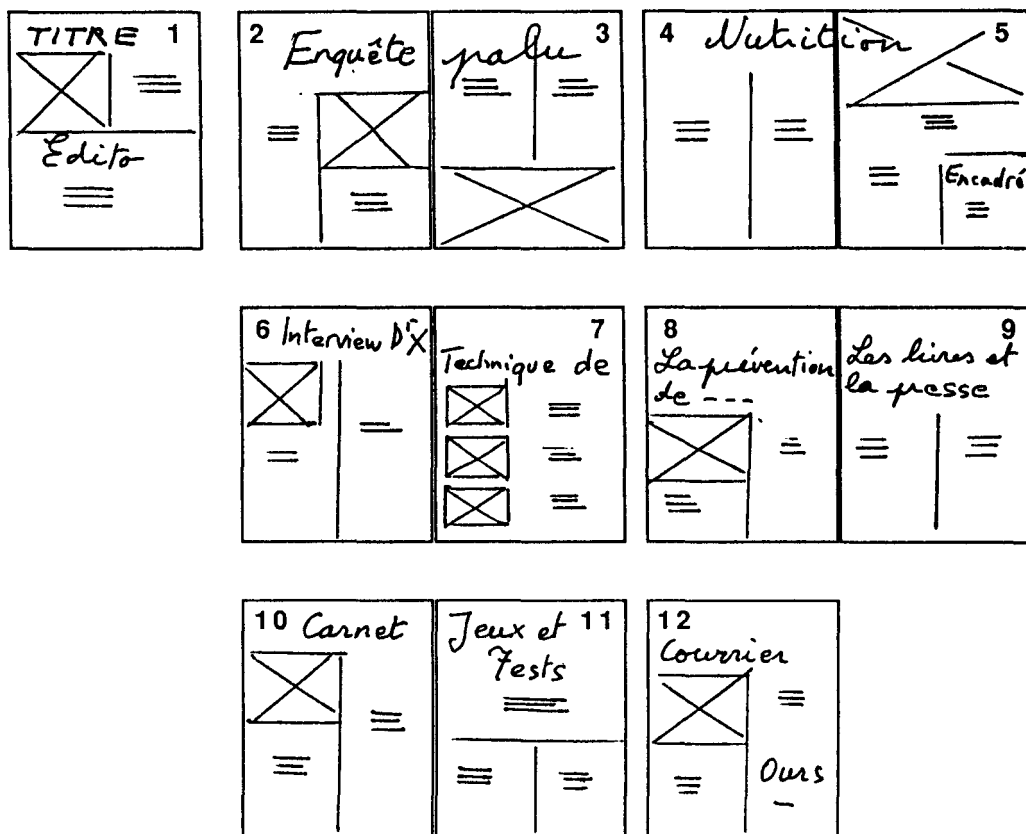 TITRE 1
Edito
2 Enquête palu 3
4 Nutrition 5
Encadré
6 Interview Dr X
7
Technique de
8
La prévention
de ---
9
Les livres et
la presse
10 Carnet
Jeux et 11
Tests
12
Courrier
Ours